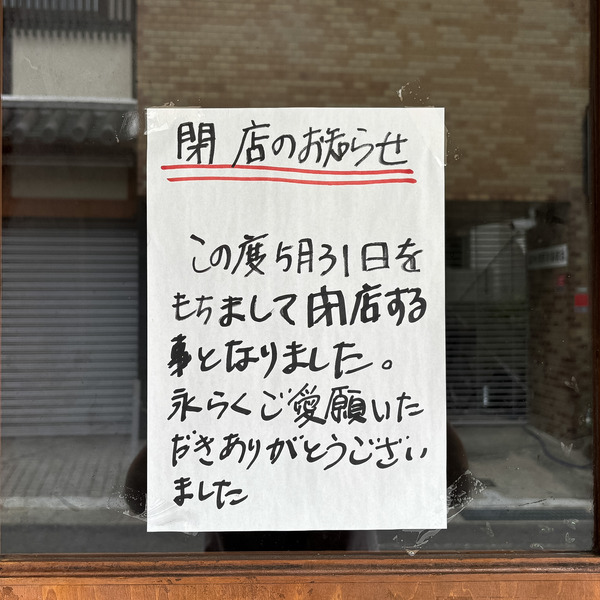 閉店のお知らせ
この度5月31日を
もちまして閉店する
事となりました。
永らくご愛願いた
だきありがとうござい
ました